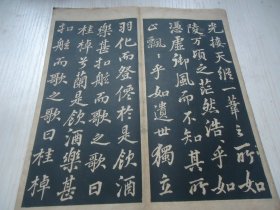 光接天縱一葦之所如
陵万頃之茫然浩乎如
憑虛御風而不知其所
止飄〻乎如遺世獨立
羽化而登僊於是飲酒
樂甚扣舷而歌之歌曰
桂棹兮蘭是飲酒樂甚
扣舷而歌之歌曰桂棹